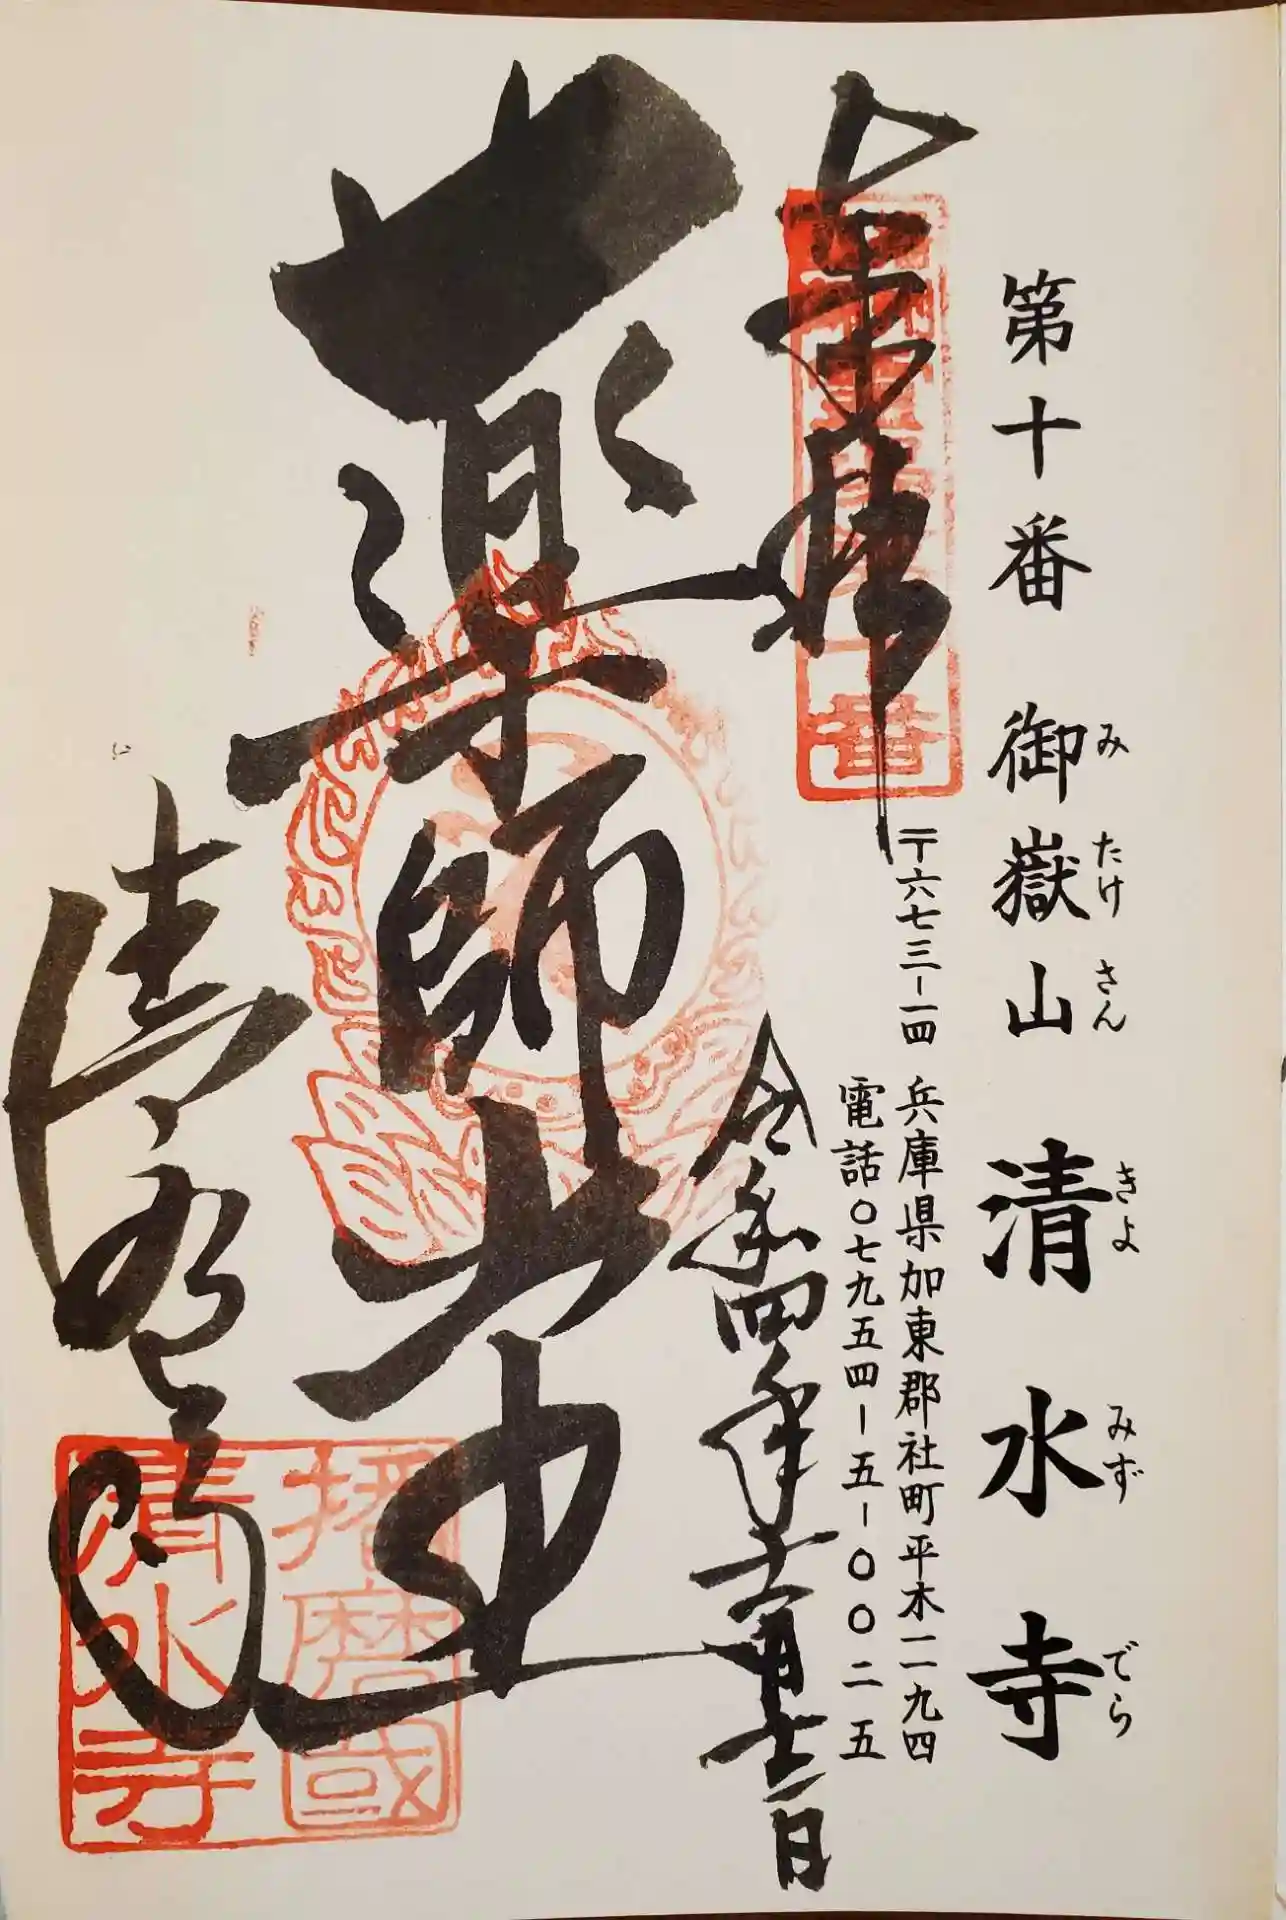 第十番 御嶽山 清水寺
み たけ さん きよ みず でら
〒六七三-一四 兵庫県加東郡社町平木一一九四
電話〇七九五四-五-〇〇二五
奉拝
令和四年十一月十二日
薬師
清水寺
番
播磨國
清水寺